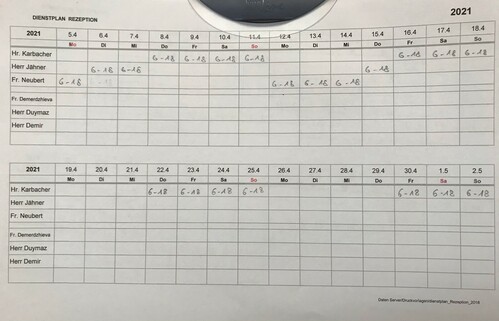 DIENSTPLAN REZEPTION
2021
2021 5.4 6.4 7.4 8.4 9.4 10.4 11.4 12.4 13.4 14.4 15.4 16.4 17.4 18.4
Mo Di Mi Do Fr Sa So Mo Di Mi Do Fr Sa So
Hr. Karbacher 6-18 6-18 6-18 6-18 6-18 6-18 6-18
Herr Jähner 6-18 6-18 6-18
Fr. Neubert 6-18 6-18 6-18 6-18
Fr. Demerdzhieva
Herr Duymaz
Herr Demir
2021 19.4 20.4 21.4 22.4 23.4 24.4 25.4 26.4 27.4 28.4 29.4 30.4 1.5 2.5
Mo Di Mi Do Fr Sa So Mo Di Mi Do Fr Sa So
Hr. Karbacher 6-18 6-18 6-18 6-18 6-18 6-18 6-18
Herr Jähner
Fr. Neubert
Fr. Demerdzhieva
Herr Duymaz
Herr Demir